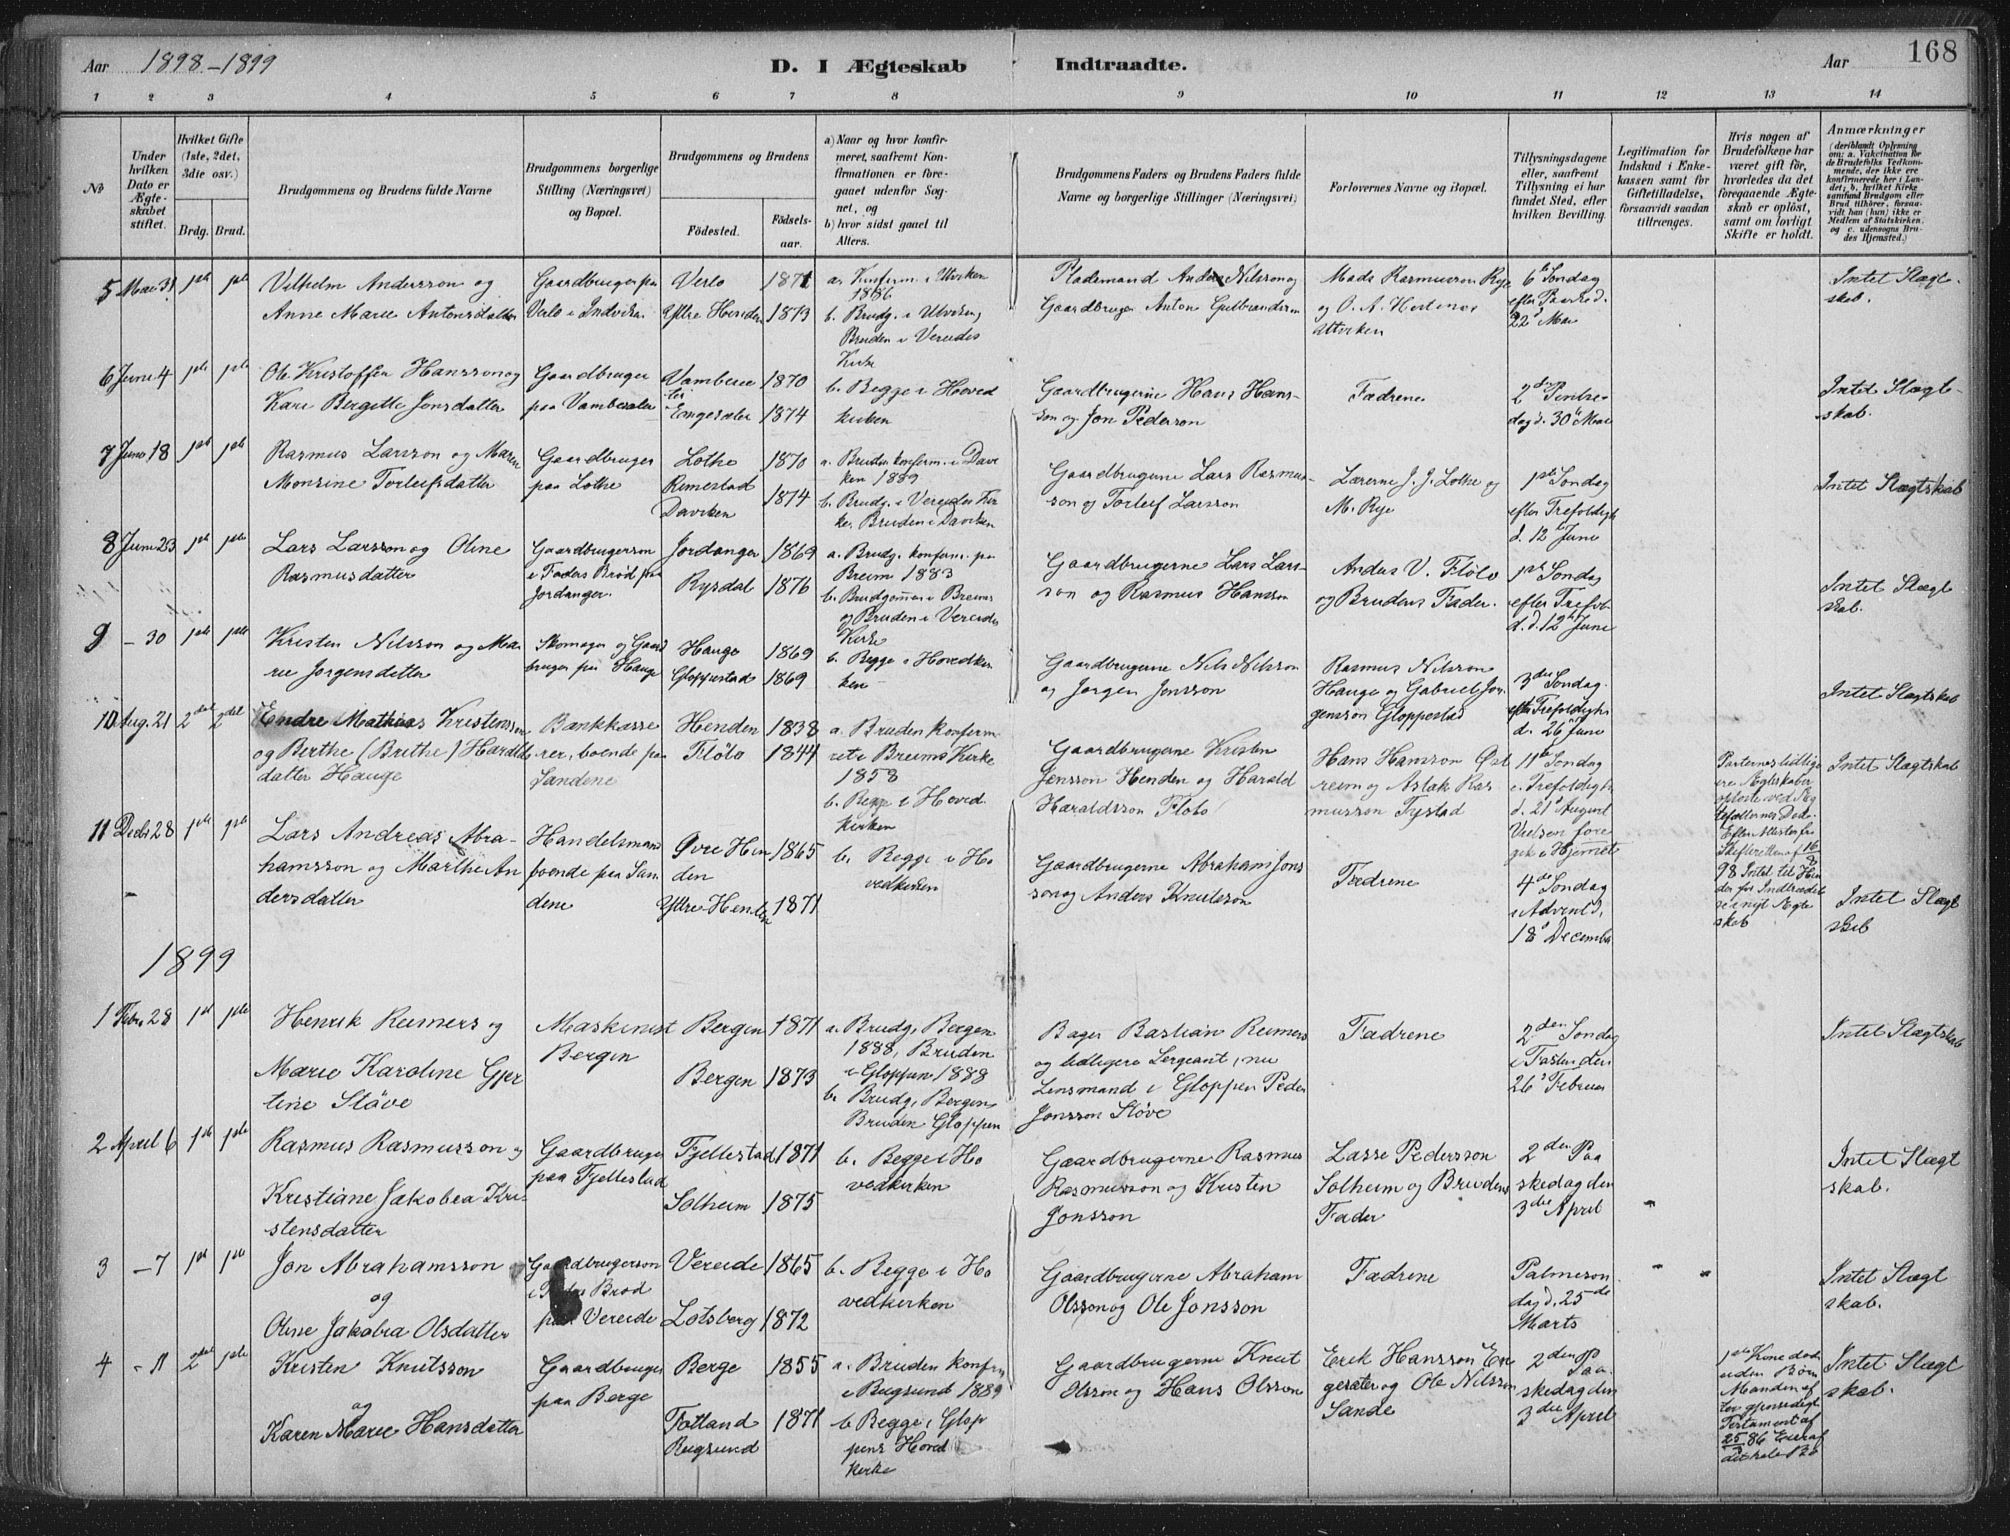 Aar 1898-1899 D. I Ægteskab Indtraadte. Aar 168
1 2 3 4 5 6 7 8 9 10 11 12 13 14
No
Under hvilken Dato er Ægteskabet stiftet.
Hvilket Gifte (1ste, 2det, 3die osv.)
Brdg. Brud.
Brudgommens og Brudens fulde Navne
Brudgommens borgerlige Stilling (Næringsvei) og Bopæl.
Brudgommens og Brudens
Födested. Födsels-aar.
a) Naar og hvor konfirmeret, saafremt Konfirmationen er foregaaet udenfor Sognet, og
b) hvor sidst gaaet til Alters.
Brudgommens Faders og Brudens Faders fulde Navne og borgerlige Stillinger (Næringsvei)
Forlovernes Navne og Bopæl.
Tillysningsdagene eller, saafremt Tillysning ei har fundet Sted, efter hvilken Bevilling.
Legitimation for Indskud i Enkekassen samt for Giftetilladelse, forsaavidt saadan tiltrænges.
Hvis nogen af Brudefolkene har været gift för, hvorledes da det foregaaende Ægteskab er oplöst, samt om lovligt Skifte er holdt.
Anmærkninger (deriblandt Oplysning om: a. Vakcination for de Brudefolks Vedkommende, der ikke ere konfirmerede her i Landet; b. hvilket Kirkesamfund Brudgom eller Brud tilhörer, forsaavidt han (hun) ikke er Medlem af Statskirken, og c. udensogns Brudes Hjemsted.)
5 Mai 31 1ste 1ste
Vilhelm Andersson og
Anne Marie Antonsdatter
Gaardbruger paa
Verlo i Indviken
Verlo 1871
Ytre Henden 1873
a. Konfirm. i Utviken
1886
b. Brudg. i Utviken,
Bruden i Vereides
Kirke
Pladsmand Anders Nilsson og
Gaardbruger Anton Gulbrandssen
Mads Rasmusson Rye
og O. A. Hestenes
Utviken
6te Söndag
efter Paaske d.
22de Mai
Intet Slægt-
skab.
6 Juni 4 1ste 1ste
Ole Kristoffer Hansson og
Kari Bergitte Jonsdatter
Gaardbruger
paa Vambesæter
Vambesæ
ter 1870
Engesæter 1874
b. Begge i Hoved
kirken
Gaardbrugerne Hans Hans-
son og Jon Pederson
Fædrene
2den Pintse-
dag d. 30te Mai
Intet Slægt-
skab.
7 Juni 18 1ste 1ste
Rasmus Larsson og Maren
Monsine Torleifsdatter
Gaardbruger
paa Lothe
Lothe 1870
Rimestad 1874
Daviken
a. Bruden konfirm. i Davi
ken 1889
b. Brudg. i Vereides Kir
ke, Bruden i Daviken
Gaardbrugerne Lars Rasmus-
son og Torleif Larsson
Lærerne J. J. Lothe og
M. Rye
1ste Söndag
efter Trefoldigh.
d. 12te Juni
Intet Slægtskab
8 Juni 23 1ste 1ste
Lars Larsson og Oline
Rasmusdatter
Gaardbrugersön
i Faders Bröd paa
Jordanger.
Jordanger 1869
Rysdal 1876
a. Brudg. konfirm. paa
Breim 1883
b. Brudgommen i Breims
og Bruden i Vereides
Kirke
Gaardbrugerne Lars Lars-
son og Rasmus Hansson
Anders V. Flölo
og Brudens Fader.
1ste Söndag
efter Trefol.
d. d. 12te Juni
Intet Slægt
skab.
9 - 30 1ste 1ste
Kristen Nilsson og Ma-
rie Jorgensdatter
Skomager og Gaard
bruger paa Hauge
Hauge 1869
Gloppestad 1869
b. Begge i Hovedkir
ken
Gaardbrugerne Nils Nilsson
og Jörgen Jonsson
Rasmus Nilsson
Hauge og Gabriel Jör
gensson Gloppestad
3die Söndag
efter Trefoldigh.
d. 26de Juni
Intet Slægtskab
10 Aug. 21 2det 2det
Endre Mathias Kristensson
og Berthe (Brithe) Haralds
datter Hauge
Bankkasse
rer, boende paa
Sandene
Henden 1838
Flölo 1844
a. Bruden konfirm
eret i Breims Kirke
1858
b. Begge i Hoved
kirken
Gaardbrugerne Kristen
Jensson Henden og Harald
Haraldsson Flölo
Hans Hansson Öst
reim og Aslak Ras
musson Tystad
11te Söndag
e. Trefoldigh.
d. 21de August
Vielsen fore
gik i Hjemmet
Parternes tidlige
re Ægteskaber
oplöste ved Æg
tefællernes Död.
Efter Attest fra
Skifteretten af 16/8
98 Intet til Hin
der for Indtrædel
se i nyt Ægte
skab
Intet Slægtskab
11 Decbr 28 1ste 1ste
Lars Andreas Abra-
hamsson og Marthe An
dersdatter
Handelsmand
boende paa San
dene
Övre Hen
den 1865
Ytre Henden 1871
b. Begge i Ho
vedkirken
Gaardbrugerne Abraham Jons
son og Anders Knutsson
Fædrene
4de Söndag
i Advent d.
18de December
Intet Slægt
skab
1899
1 Febr. 28 1ste 1ste
Henrik Reimers og
Marie Karoline Gjer
tine Slöve
Maskinist
Bergen
Bergen 1871
Bergen 1873
a. Brudg. Bergen
1888, Bruden
i Gloppen 1888
b. Brudg. Bergen,
Bruden Gloppen
Bager Bastian Reimers
og tidligere Sergeant, nu
Lensmand i Gloppen Peder
Jonsson Slöve
Fædrene
2den Söndag
i Fasten den
26de Februar
Intet Slægtskab
2 April 6 1ste 1ste
Rasmus Rasmusson og
Kristiane Jakobea Kri-
stensdatter
Gaardbruger
paa Fjellestad
Fjellestad 1871
Solheim 1875
b. Begge i Ho
vedkirken
Gaardbrugerne Rasmus
Rasmusson og Kristen
Jonsson
Lasse Pedersson
Solheim og Brudens
Fader
2den Paa
skedag den
3die April
Intet Slægt
skab.
3 - 7 1ste 1ste
Jon Abrahamsson
og
Oline Jakobea Olsdatter
Gaardbrugersön
i Faders Bröd
paa Vereide
Vereide 1865
Lotsberg 1872
b. Begge i Ho
vedkirken
Gaardbrugerne Abraham
Olsson og Ole Jonsson
Fædrene
Palmesön
dag d. 25de
Marts
Intet Slægt
skab.
4 - 11 2det 1ste
Kristen Knutsson
og
Karen Marie Hansdatter
Gaardbruger
paa Berge
Berge 1855
Totland 1871
Rugsund
a. Bruden konfirm
i Rugsund 1889
b. Begge i Glop
pens Hoved
kirke
Gaardbrugerne Knut
Olsson og Hans Olsson
Erik Hansson En
gesæter og Ole Nilsson
Sande
2den Paa
skedag den
3die April
1ste Kone död
uden Börn
Manden ef
ter gjensidigt
Testament af
25/3 86 Eier af
det hele Bo
Intet Slægt
skab.